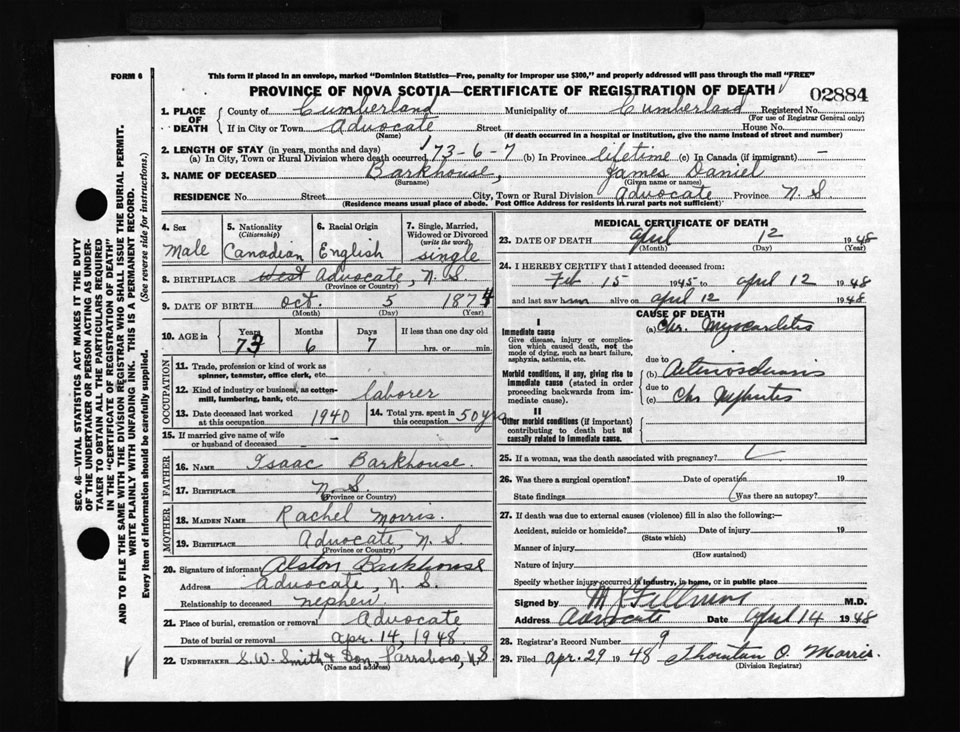 FORM 6
This form if placed in an envelope, marked "Dominion Statistics—Free, penalty for improper use $300," and properly addressed will pass through the mail "FREE"
PROVINCE OF NOVA SCOTIA—CERTIFICATE OF REGISTRATION OF DEATH
02884
1. PLACE OF DEATH
County of Cumberland Municipality of Cumberland Registered No.
(For use of Registrar General only)
If in City or Town Advocate Street House No.
(Name) (If death occurred in a hospital or institution, give the name instead of street and number)
2. LENGTH OF STAY (in years, months and days)
(a) In City, Town or Rural Division where death occurred 73-6-7 (b) In Province lifetime (c) In Canada (if immigrant) —
3. NAME OF DECEASED Barkhouse, James Daniel
(Surname) (Given name or names)
RESIDENCE No. Street City, Town or Rural Division Advocate Province N.S.
(Residence means usual place of abode. Post Office Address for residents in rural parts not sufficient)
4. Sex
Male
5. Nationality
(Citizenship)
Canadian
6. Racial Origin
English
7. Single, Married, Widowed or Divorced
(write the word)
single
8. BIRTHPLACE West Advocate, N.S.
(Province or Country)
9. DATE OF BIRTH Oct. 5 1874
(Month) (Day) (Year)
10. AGE in
Years Months Days If less than one day old
73 6 7 hrs. or min.
OCCUPATION
11. Trade, profession or kind of work as spinner, teamster, office clerk, etc.
12. Kind of industry or business, as cotton-mill, lumbering, bank, etc. laborer
13. Date deceased last worked at this occupation 1940
14. Total yrs. spent in this occupation 50 yrs
15. If married give name of wife or husband of deceased —
FATHER
16. NAME Isaac Barkhouse.
17. BIRTHPLACE N.S.
(Province or Country)
MOTHER
18. MAIDEN NAME Rachel Morris.
19. BIRTHPLACE Advocate, N.S.
(Province or Country)
20. Signature of informant Alston Barkhouse
Address Advocate, N.S.
Relationship to deceased nephew
21. Place of burial, cremation or removal Advocate
Date of burial or removal Apr. 14, 1948.
22. UNDERTAKER S.W. Smith & Son, Parrsboro, N.S
(Name and address)
MEDICAL CERTIFICATE OF DEATH
23. DATE OF DEATH April 12 1948
(Month) (Day)
24. I HEREBY CERTIFY that I attended deceased from:
Feb 15 1945 to April 12 1948
and last saw him alive on April 12 1948
CAUSE OF DEATH
I
Immediate cause
Give disease, injury or complication which caused death, not the mode of dying, such as heart failure, asphyxia, asthenia, etc.
(a) Chr. Myocarditis
due to
Morbid conditions, if any, giving rise to immediate cause (stated in order proceeding backwards from immediate cause).
(b) Arteriosclerosis
due to
(c) Chr Nephritis
II
Other morbid conditions (if important) contributing to death but not causally related to immediate cause.
25. If a woman, was the death associated with pregnancy?
26. Was there a surgical operation? Date of operation 19
State findings Was there an autopsy?
27. If death was due to external causes (violence) fill in also the following:—
Accident, suicide or homicide? Date of injury 19
(State which)
Manner of injury
(How sustained)
Nature of injury
Specify whether injury occurred in industry, in home, or in public place
Signed by M.D.
Address Advocate Date April 14 1948
28. Registrar's Record Number 9
29. Filed Apr. 29 1948 Thornton O. Morris.
(Division Registrar)
SEC. 46—VITAL STATISTICS ACT MAKES IT THE DUTY
OF THE UNDERTAKER OR PERSON ACTING AS UNDER-
TAKER TO OBTAIN ALL THE PARTICULARS REQUIRED
IN THE "CERTIFICATE OF REGISTRATION OF DEATH"
AND TO FILE THE SAME WITH THE DIVISION REGISTRAR WHO SHALL ISSUE THE BURIAL PERMIT.
WRITE PLAINLY WITH UNFADING INK. THIS IS A PERMANENT RECORD.
Every item of information should be carefully supplied. (See reverse side for instructions.)